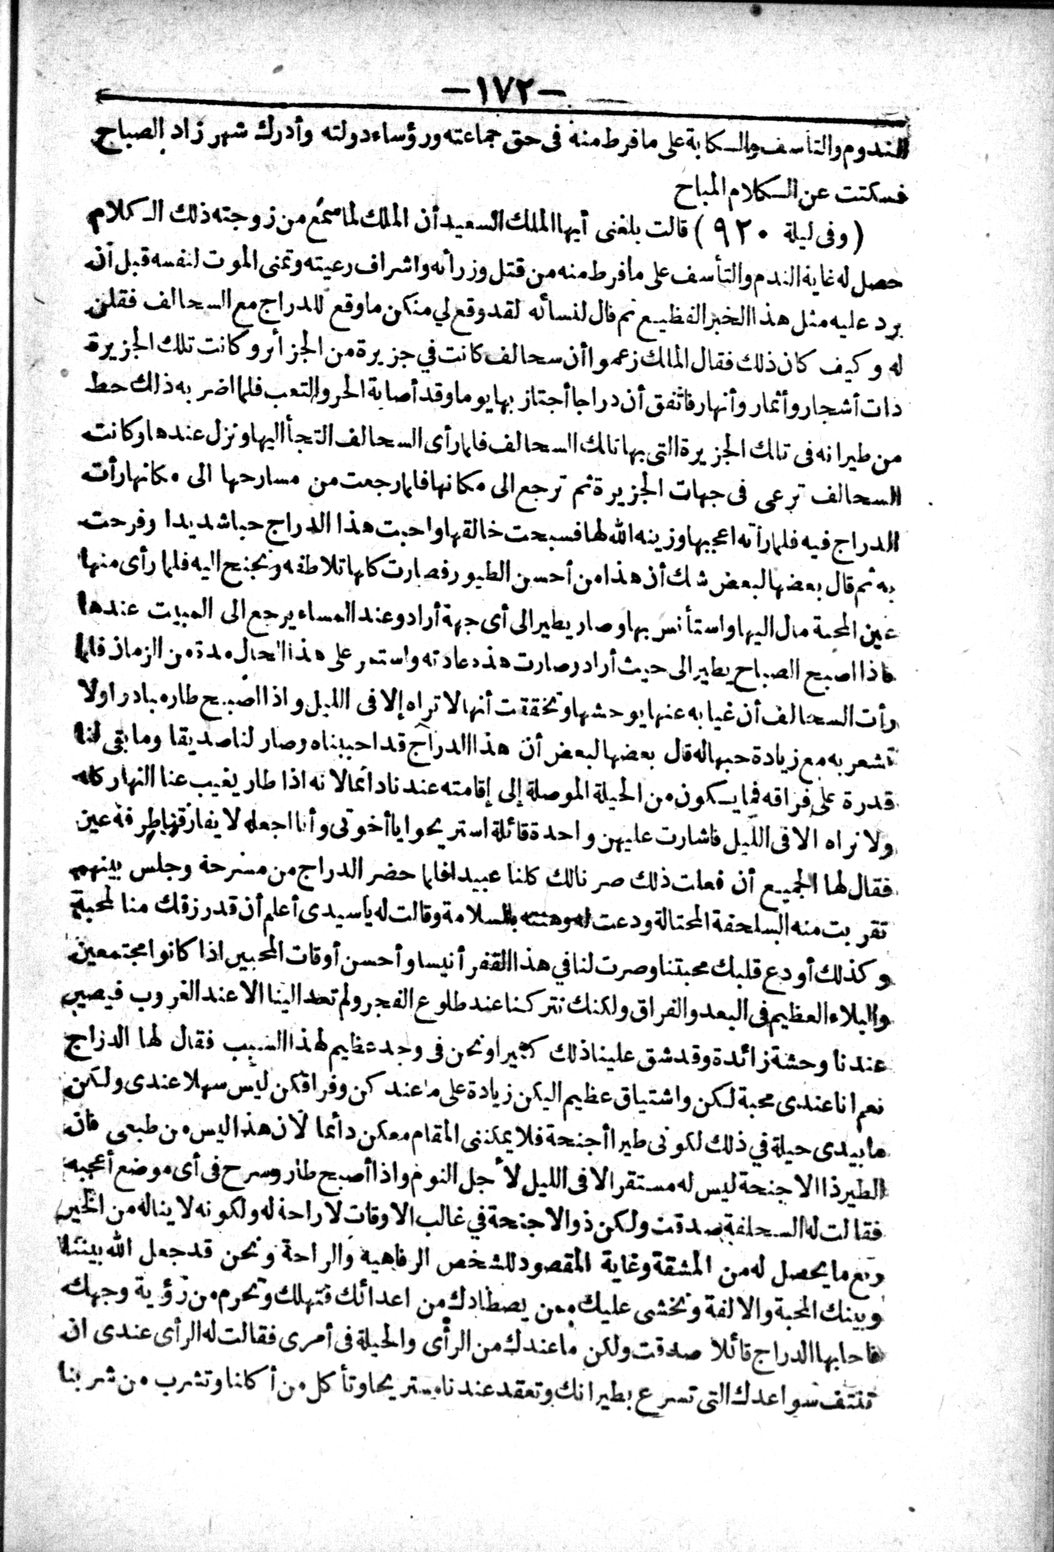 —١٧٢—
الندوم والتأسف والكآبة على ما فرط منه فى حق جماعته ورؤساء دولته وأدرك شهر زاد الصباح
فسكتت عن الكلام المباح
(وفى ليلة ٩٢٠) قالت بلغنى أيها الملك السعيد أن الملك لما سمع من زوجته ذلك الكلام
حصل له غاية الندم والتأسف على ما فرط منه من قتل وزرائه واشراف رعيته وتمنى الموت لنفسه قبل أن
يرد عليه مثل هذا الخبر الفظيع ثم قال لنسائه لقد وقع لي منكن ما وقع للدراج مع السحالف فقلن
له وكيف كان ذلك فقال الملك زعموا أن سحالف كانت في جزيرة من الجزائر وكانت تلك الجزيرة
ذات أشجار وأثمار وأنهار فاتفق أن دراجا أجتاز بها يوما وقد أصابة الحر والتعب فلما اضر به ذلك حط
من طيرانه فى تلك الجزيرة التى بها تلك السحالف فلما رأى السحالف التجأ اليها ونزل عندها وكانت
السحالف ترعى فى جهات الجزيرة ثم ترجع الى مكانها فلما رجعت من مسارحها الى مكانها رأت
الدراج فيه فلما رأته اعجبها وزينه الله لها فسبحت خالقها واحبت هذا الدراج حبا شديدا وفرحت
به ثم قال بعضها لبعض شك أن هذا من أحسن الطيور فصارت كلها تلاطفه وتجنح اليه فلما رأى منها
عين المحبة مال اليها واستأنس بها وصار يطير الى أى جهة أراد وعند المساء يرجع الى المبيت عندها
فاذا اصبح الصباح يطير الى حيث أراد وصارت هذه عادته واستمر على هذا الحال مدة من الزمان فلما
رأت السحالف أن غيابه عنها يوحشها وتحققت أنها لا تراه إلا فى الليل واذا اصبح طار مبادرا ولا
تشعر به مع زيادة حبها له قال بعضها لبعض أن هذا الدراج قد احببناه وصار لنا صديقا وما بقى لنا
قدرة على فراقه فما يكون من الحيلة الموصلة إلى إقامته عندنا دائما لانه اذا طار يغيب عنا النهار كله
ولا نراه الا فى الليل فاشارت عليهن واحدة قائلة استريحوا يا أخوتى وأنا اجعله لا يفارقنا طرفة عين
فقال لها الجميع أن فعلت ذلك صرنا لك كلنا عبيدا فلما حضر الدراج من مسرحة وجلس بينهم
تقربت منه السلحفة المحتالة ودعت له وهنته بالسلامة وقالت له يا سيدى أعلم أن قد رزقك منا المحبة
وكذلك أودع قلبك محبتنا وصرت لنا في هذا القفر أنيسا وأحسن أوقات المحبين اذا كانوا مجتمعين
والبلاء العظيم فى البعد والفراق ولكنك تتركنا عند طلوع الفجر ولم تعد الينا الا عند الغروب فيصير
عندنا وحشة زائدة وقد شق علينا ذلك كثيرا ونحن فى وجد عظيم لهذا السبب فقال لها الدراج
نعم انا عندى محبة لكن واشتياق عظيم اليكن زيادة على ما عندكن وفراقكن ليس سهلا عندى ولكن
ما بيدى حيلة في ذلك لكونى طيرا أجنحة فلا يمكننى المقام معكن دائما لأن هذا ليس من طبعى فان
الطير ذا الاجنحة ليس له مستقر الا فى الليل لأجل النوم واذا أصبح طار وسرح فى أى موضع أعجبه
فقالت له السحلفة صدقت ولكن ذو الاجنحة في غالب الاوقات لا راحة له ولكونه لا يناله من الخير
ربع ما يحصل له من المشقة وغاية المقصود للشخص الرفاهية والراحة ونحن قد جعل الله بيننا
وبينك المحبة والالفة ونخشى عليك ممن يصطادك من اعدائك فتهلك ونحرم من رؤية وجهك
فاجابها الدراج قائلا صدقت ولكن ما عندك من الرأى والحيلة فى أمرى فقالت له الرأى عندى ان
تنتف سواعدك التى تسرع بطيرانك وتقعد عندنا مستريحا وتأكل من أكلنا وتشرب من شربنا